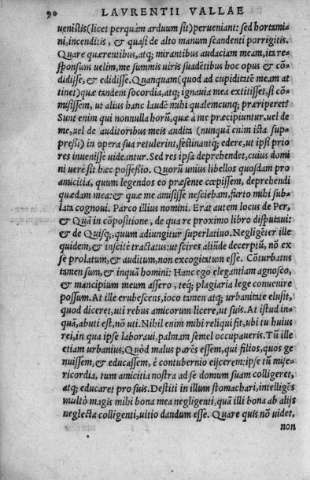 90 LAVRENTII VALLAE
uenistis(licet perquàm arduum sit)perueniant: sed hortamini,
ni, incenditis, & quasi de alto manum scandenti porrigitis.
Quare quærentibus, atq; mirantibus audaciam meam, ita responsum
sponsum uelim, me summis uiris suadētibus hoc opus & cōdidisse,
didisse, & edidisse. Quanquam(quod ad cupiditatē meam attinet)
tinet)quæ tandem socordia, atq; ignauia mea extitisset, si cōmisissem,
misissem, ut alius hanc laudē mihi qualemcunq; præriperet?
Sunt enim qui nonnulla horū, quæ à me præcipiuntur, uel de
me, uel de auditoribus meis audita (nunquā enim ista suppressi)
pressi) in opera sua retulerint, festinantq; edere, ut ipsi priores
res inuenisse uideantur. Sed res ipsa deprehendet, cuius domini
ni uerè sit hæc possessio. Quorū unius libellos quosdam pro
amicitia, quum legendos eo præsente cœpissem, deprehendi
quædam mea: & quæ me amisisse nesciebam, furto mihi sublata
lata cognoui. Parco illius nomini. Erat autem locus de Per,
& Quā in cōpositione, de qua re proximo libro disputaui:
& de Quisq;, quum adiungitur superlatino. Negligēter ille
quidem, & inscitè tractatus: ut scires aliūde decerptū, nō ex
se prolatum, & auditum, non excogitatum esse. Cōturbatus
tamen sum, & inquā homini: Hanc ego elegantiam agnosco,
& mancipium meum assero, teq; plagiaria lege conuenire
possum. At ille erubescens, ioco tamen atq; urbanitate elusit,
quod diceret, uti rebus amicorum licere, ut suis. At istud inquā,
quā, abuti est, nō uti. Nihil enim mihi reliqui fit, ubi tu huius
rei, in qua ipse laboraui, palmam semel occupaueris. Tū ille
etiam urbanius, Quòd malus parēs essem, qui filios, quos genuissem,
nuissem, & educassem, è contubernio eijcerem: ipse tū misericordia,
ricordia, tum amicitia nostra ad se domum suam colligeret,
atq; educaret pro suis. Destiti in illum stomachari, intelligēs
multò magis mihi bona mea negligenti, quā illi bona ab alijs
neglecta colligenti, uitio dandum esse. Quare quis nō uidet,
non